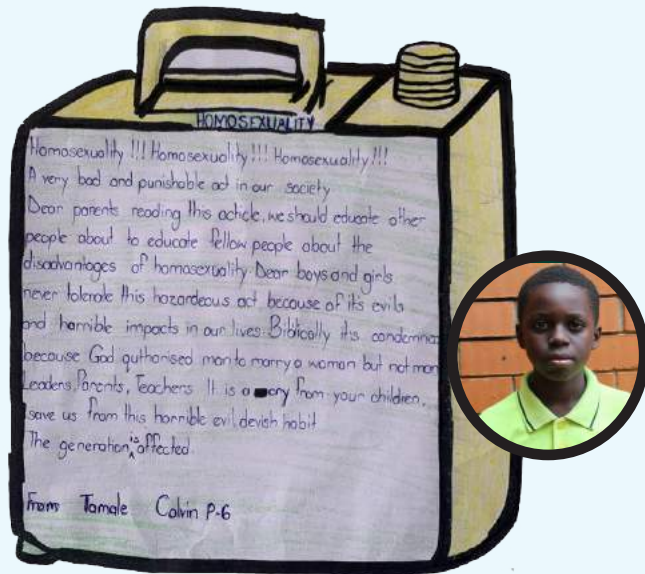 HOMOSEXUALITY
Homosexuality !!! Homosexuality !!! Homosexuality !!!
A very bad and punishable act in our society
Dear parents reading this acticle, we should educate other
people about to educate fellow people about the
disadvantages of homosexuality. Dear boys and girls
never tolerate this hazardeous act because of its evils
and horrible impacts in our lives. Biblically its condemna
because God authorised man to marry a woman but not man
Leaders, Parents, Teachers It is a cry from your children,
save us from this horrible evil devish habit
The generation is affected.
From Tamale Calvin P-6